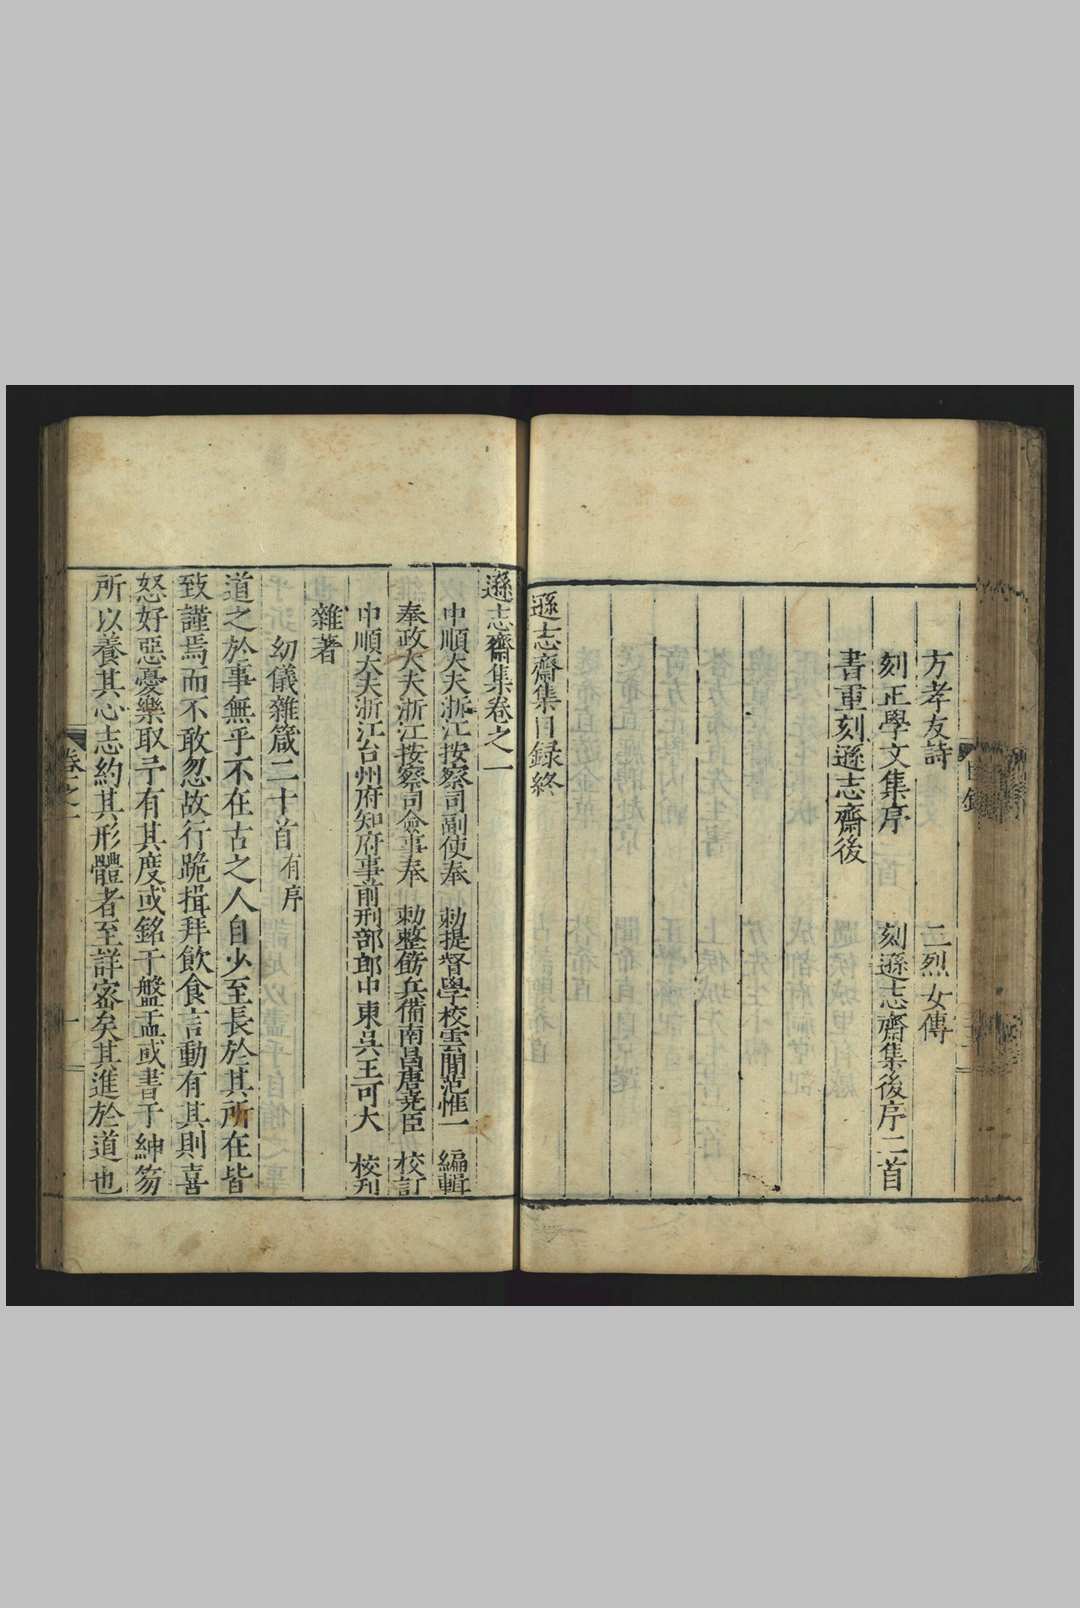 方孝友詩　三烈女傳
刻正學文集序　刻遜志齋集後序二首
書重刻遜志齋後
遜志齋集目録終
遜志齋集卷之一
中順大夫浙江按察司副使奉　勅提督學校雲間范惟一　編輯
奉政大夫浙江按察司僉事奉　勅整飭兵備南昌唐堯臣　校訂
中順大夫浙江台州府知府事前刑部郎中東吳王可大　校刊
雜著
幼儀雜箴二十首有序
道之於事無乎不在古之人自少至長於其所在皆
致謹焉而不敢忽故行跪揖拜飲食言動有其則喜
怒好惡憂樂取予有其度或銘于盤盂或書于紳笏
所以養其心志約其形體者至詳密矣其進於道也
卷之一
一